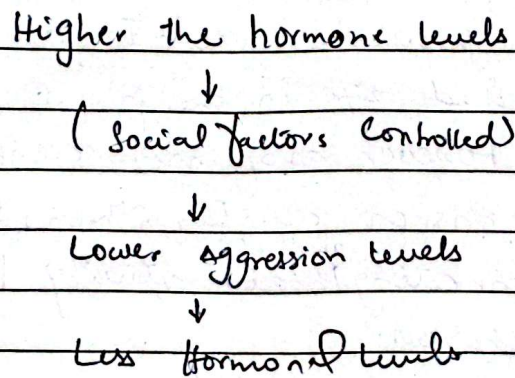 Higher the hormone levels
↓
( Social factors Controlled)
↓
Lower Aggression levels
↓
Less Hormonal levels